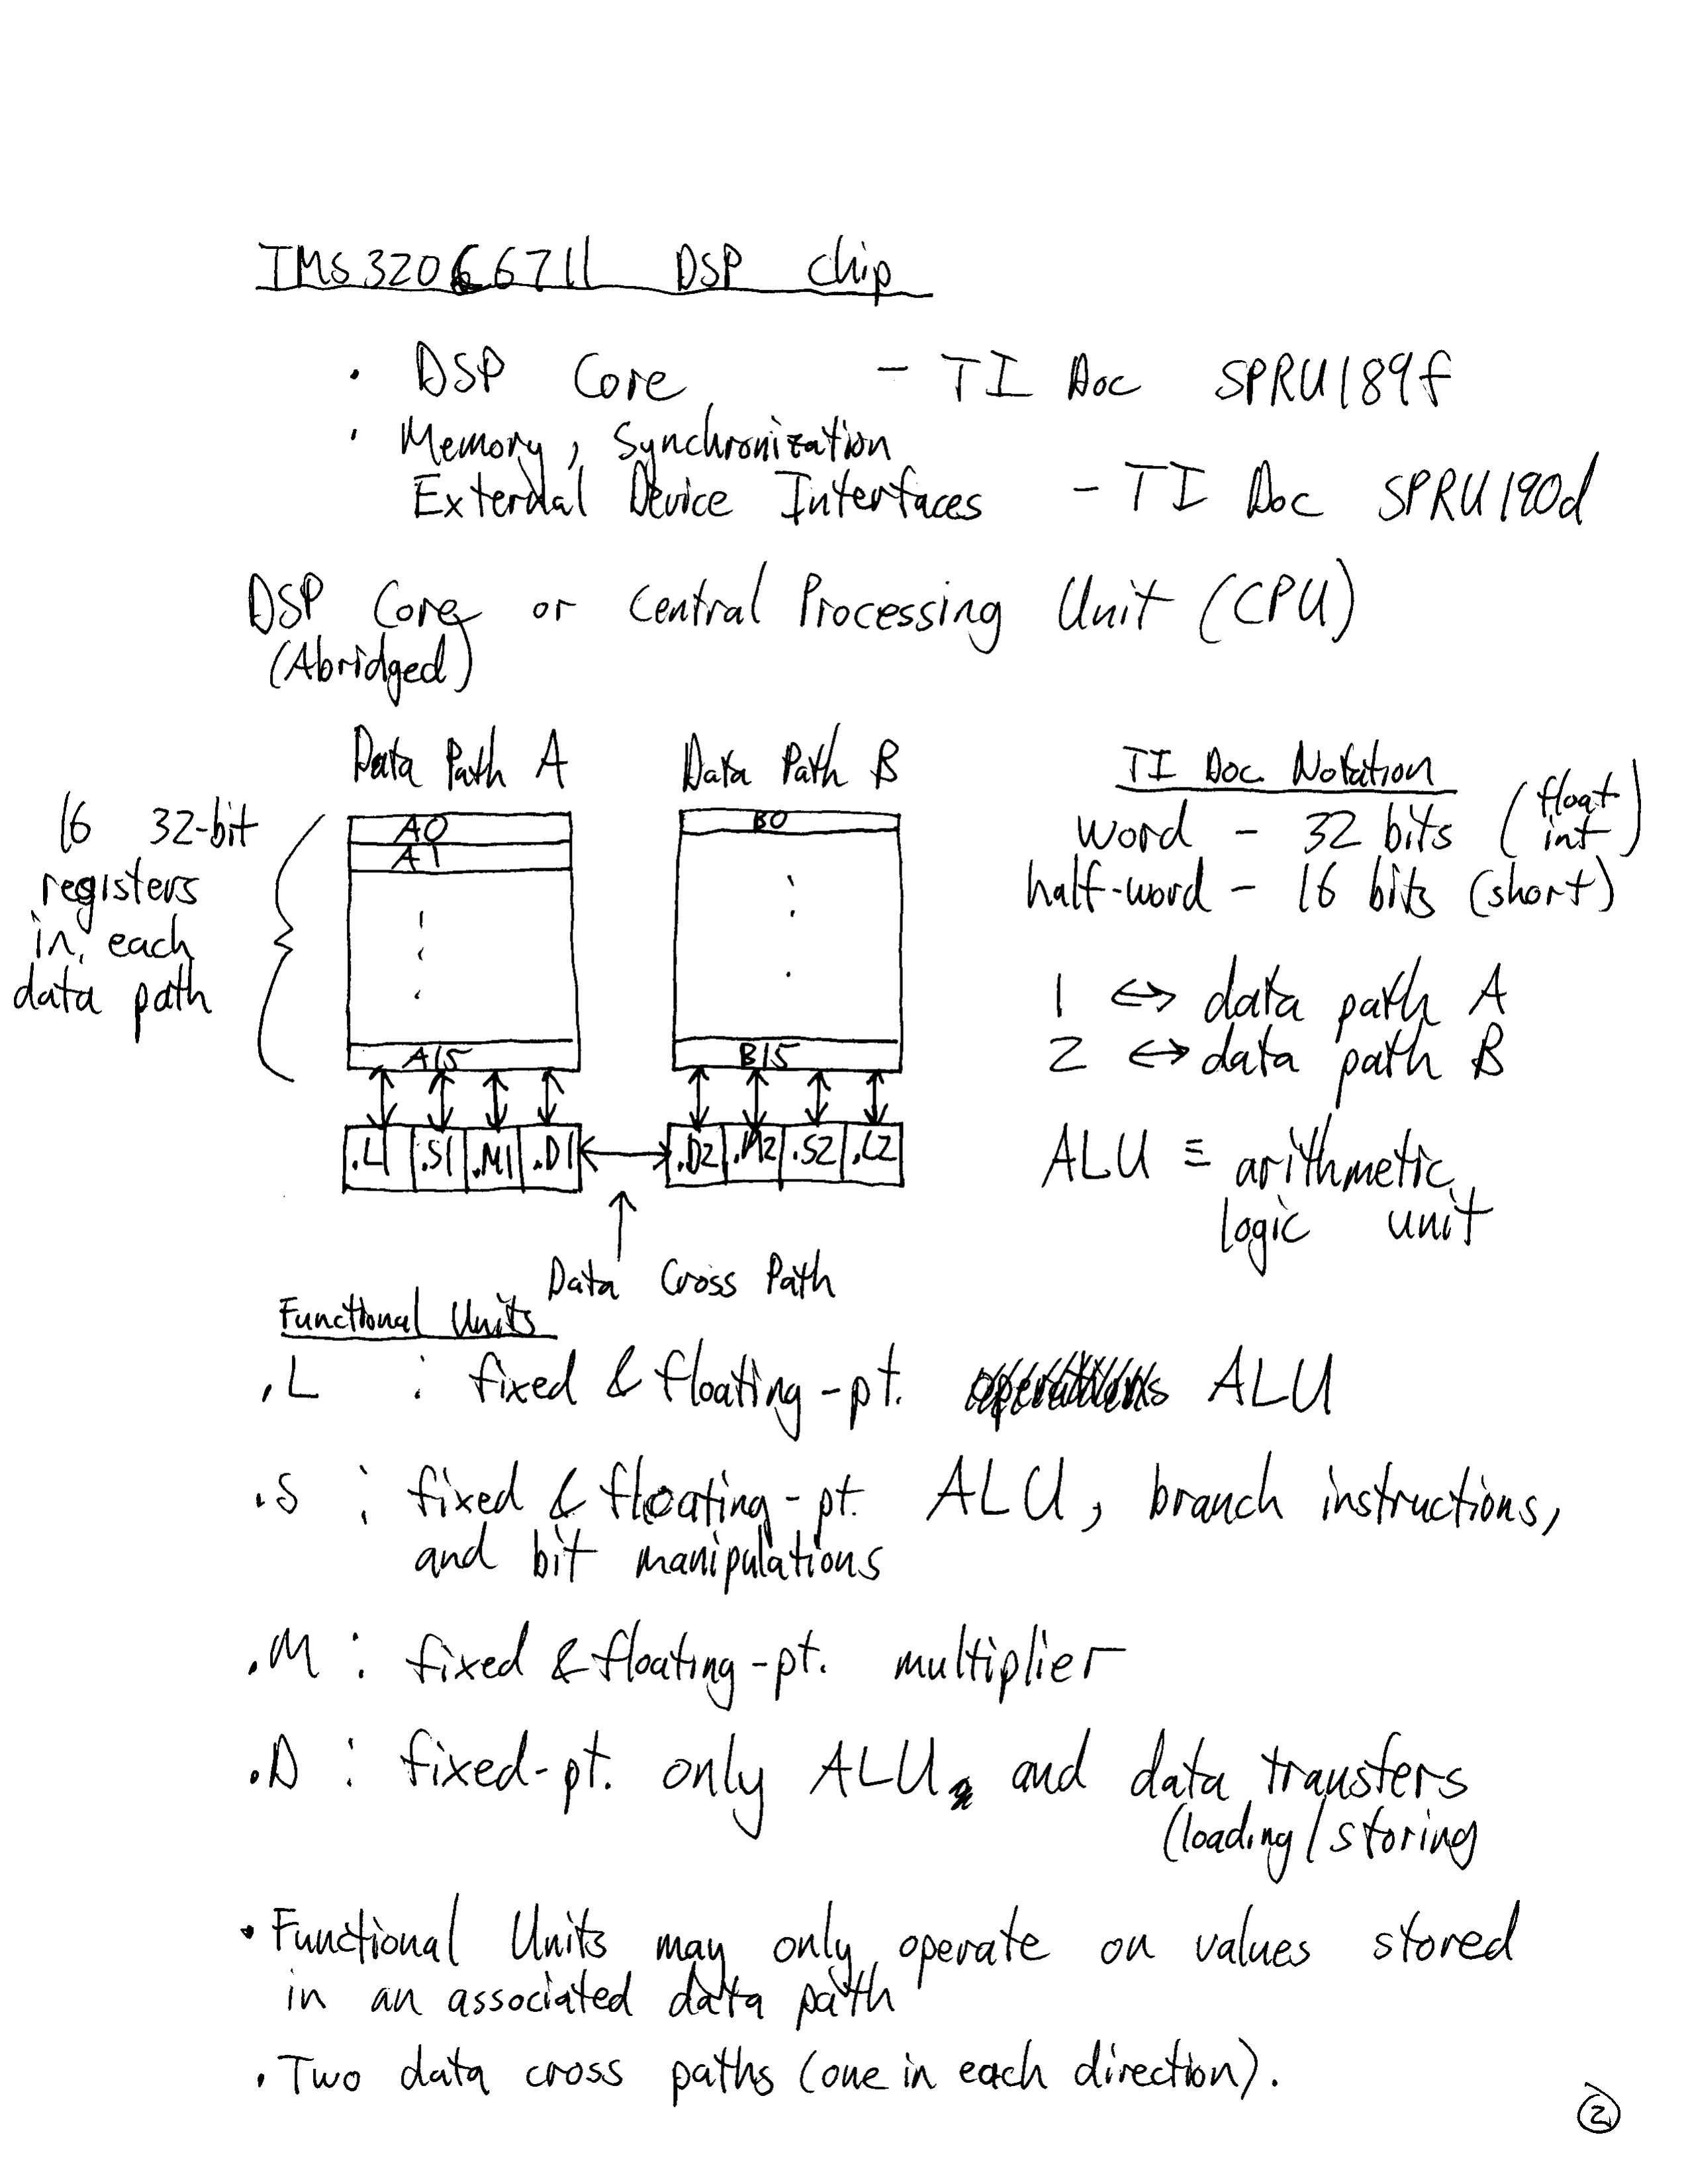 TMS320C6711 DSP chip
· DSP Core - TI Doc SPRU189f
· Memory, Synchronization
External Device Interfaces - TI Doc SPRU190d
DSP Core or Central Processing Unit (CPU)
(Abridged)
Data Path A
Data Path B
16 32-bit
registers
in each
data path
A0
A1
A15
B0
B15
.L1 .S1 .M1 .D1
.D2 .M2 .S2 .L2
Data Cross Path
TI Doc Notation
word - 32 bits (float
int)
half-word - 16 bits (short)
1 ↔ data path A
2 ↔ data path B
ALU ≡ arithmetic
logic unit
Functional Units
.L : fixed & floating-pt. operations ALU
.S : fixed & floating-pt. ALU, branch instructions,
and bit manipulations
.M : fixed & floating-pt. multiplier
.D : fixed-pt. only ALU and data transfers
(loading/storing
· Functional Units may only operate on values stored
in an associated data path
· Two data cross paths (one in each direction).
2